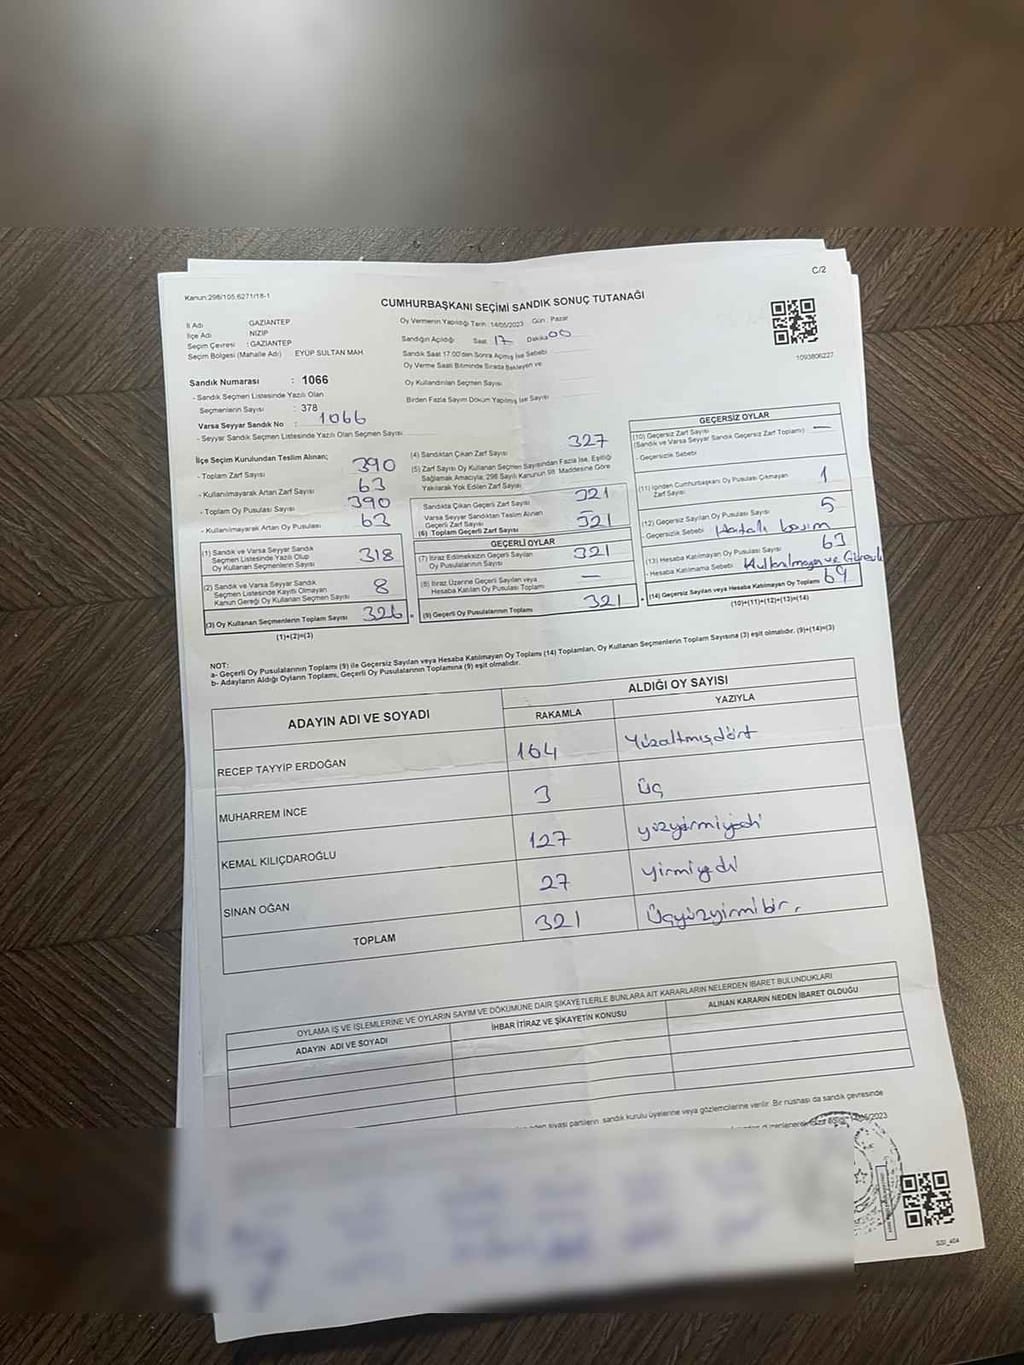 Kanun:298/105,6271/18-1
C/2
CUMHURBAŞKANI SEÇİMİ SANDIK SONUÇ TUTANAĞI
İl Adı GAZİANTEP
İlçe Adı : NİZİP
Seçim Çevresi : GAZİANTEP
Seçim Bölgesi (Mahalle Adı) EYÜP SULTAN MAH.
Oy Vermenin Yapıldığı Tarih : 14/05/2023 Gün : Pazar
Sandığın Açıldığı Saat 17 Dakika 00
Sandık Saat 17.00'den Sonra Açılmış İse Sebebi
Oy Verme Saati Bitiminde Sırada Bekleyen ve
Oy Kullandırılan Seçmen Sayısı
Birden Fazla Sayım Döküm Yapılmış İse Sayısı
1093806227
Sandık Numarası : 1066
- Sandık Seçmen Listesinde Yazılı Olan
Seçmenlerin Sayısı : 378
Varsa Seyyar Sandık No : 1066
- Seyyar Sandık Seçmen Listesinde Yazılı Olan Seçmen Sayısı
İlçe Seçim Kurulundan Teslim Alınan;
- Toplam Zarf Sayısı 390
- Kullanılmayarak Artan Zarf Sayısı 63
- Toplam Oy Pusulası Sayısı 390
- Kullanılmayarak Artan Oy Pusulası 63
(1) Sandık ve Varsa Seyyar Sandık
Seçmen Listesinde Yazılı Olup
Oy Kullanan Seçmenlerin Sayısı 318
(2) Sandık ve Varsa Seyyar Sandık
Seçmen Listesinde Kayıtlı Olmayan
Kanun Gereği Oy Kullanan Seçmen Sayısı 8
(3) Oy Kullanan Seçmenlerin Toplam Sayısı 326
(1)+(2)=(3)
(4) Sandıktan Çıkan Zarf Sayısı 327
(5) Zarf Sayısı Oy Kullanan Seçmen Sayısından Fazla İse, Eşitliği
Sağlamak Amacıyla; 298 Sayılı Kanunun 98. Maddesine Göre
Yakılarak Yok Edilen Zarf Sayısı
Sandıkta Çıkan Geçerli Zarf Sayısı 321
Varsa Seyyar Sandıktan Teslim Alınan
Geçerli Zarf Sayısı
(6) Toplam Geçerli Zarf Sayısı 321
GEÇERLİ OYLAR
(7) İtiraz Edilmeksizin Geçerli Sayılan
Oy Pusulalarının Sayısı 321
(8) İtiraz Üzerine Geçerli Sayılan veya
Hesaba Katılan Oy Pusulası Toplamı —
(9) Geçerli Oy Pusulalarının Toplamı 321
GEÇERSİZ OYLAR
(10) Geçersiz Zarf Sayısı —
(Sandık ve Varsa Seyyar Sandık Geçersiz Zarf Toplamı)
- Geçersizlik Sebebi
(11) İçinden Cumhurbaşkanı Oy Pusulası Çıkmayan
Zarf Sayısı 1
(12) Geçersiz Sayılan Oy Pusulası Sayısı 5
- Geçersizlik Sebebi Hatalı basım
(13) Hesaba Katılmayan Oy Pusulası Sayısı 63
- Hesaba Katılmama Sebebi Kullanılmayan ve
(14) Geçersiz Sayılan veya Hesaba Katılmayan Oy Toplamı 69
(10)+(11)+(12)+(13)=(14)
NOT:
a- Geçerli Oy Pusulalarının Toplamı (9) ile Geçersiz Sayılan veya Hesaba Katılmayan Oy Toplamı (14) Toplamları, Oy Kullanan Seçmenlerin Toplam Sayısına (3) eşit olmalıdır. (9)+(14)=(3)
b- Adayların Aldığı Oyların Toplamı, Geçerli Oy Pusulalarının Toplamına (9) eşit olmalıdır.
ADAYIN ADI VE SOYADI
ALDIĞI OY SAYISI
RAKAMLA YAZIYLA
RECEP TAYYİP ERDOĞAN 164 Yüzaltmışdört
MUHARREM İNCE 3 Üç
KEMAL KILIÇDAROĞLU 127 yüzyirmiyedi
SİNAN OĞAN 27 yirmiyedi
TOPLAM 321 Üçyüzyirmibir.
OYLAMA İŞ VE İŞLEMLERİNE VE OYLARIN SAYIM VE DÖKÜMÜNE DAİR ŞİKAYETLERLE BUNLARA AİT KARARLARIN NELERDEN İBARET BULUNDUKLARI
ADAYIN ADI VE SOYADI
İHBAR İTİRAZ VE ŞİKAYETİN KONUSU
ALINAN KARARIN NEDEN İBARET OLDUĞU
siyasi partilerin sandık kurulu üyelerine veya gözlemcilerine verilir. Bir nüshası da sandık çevresinde